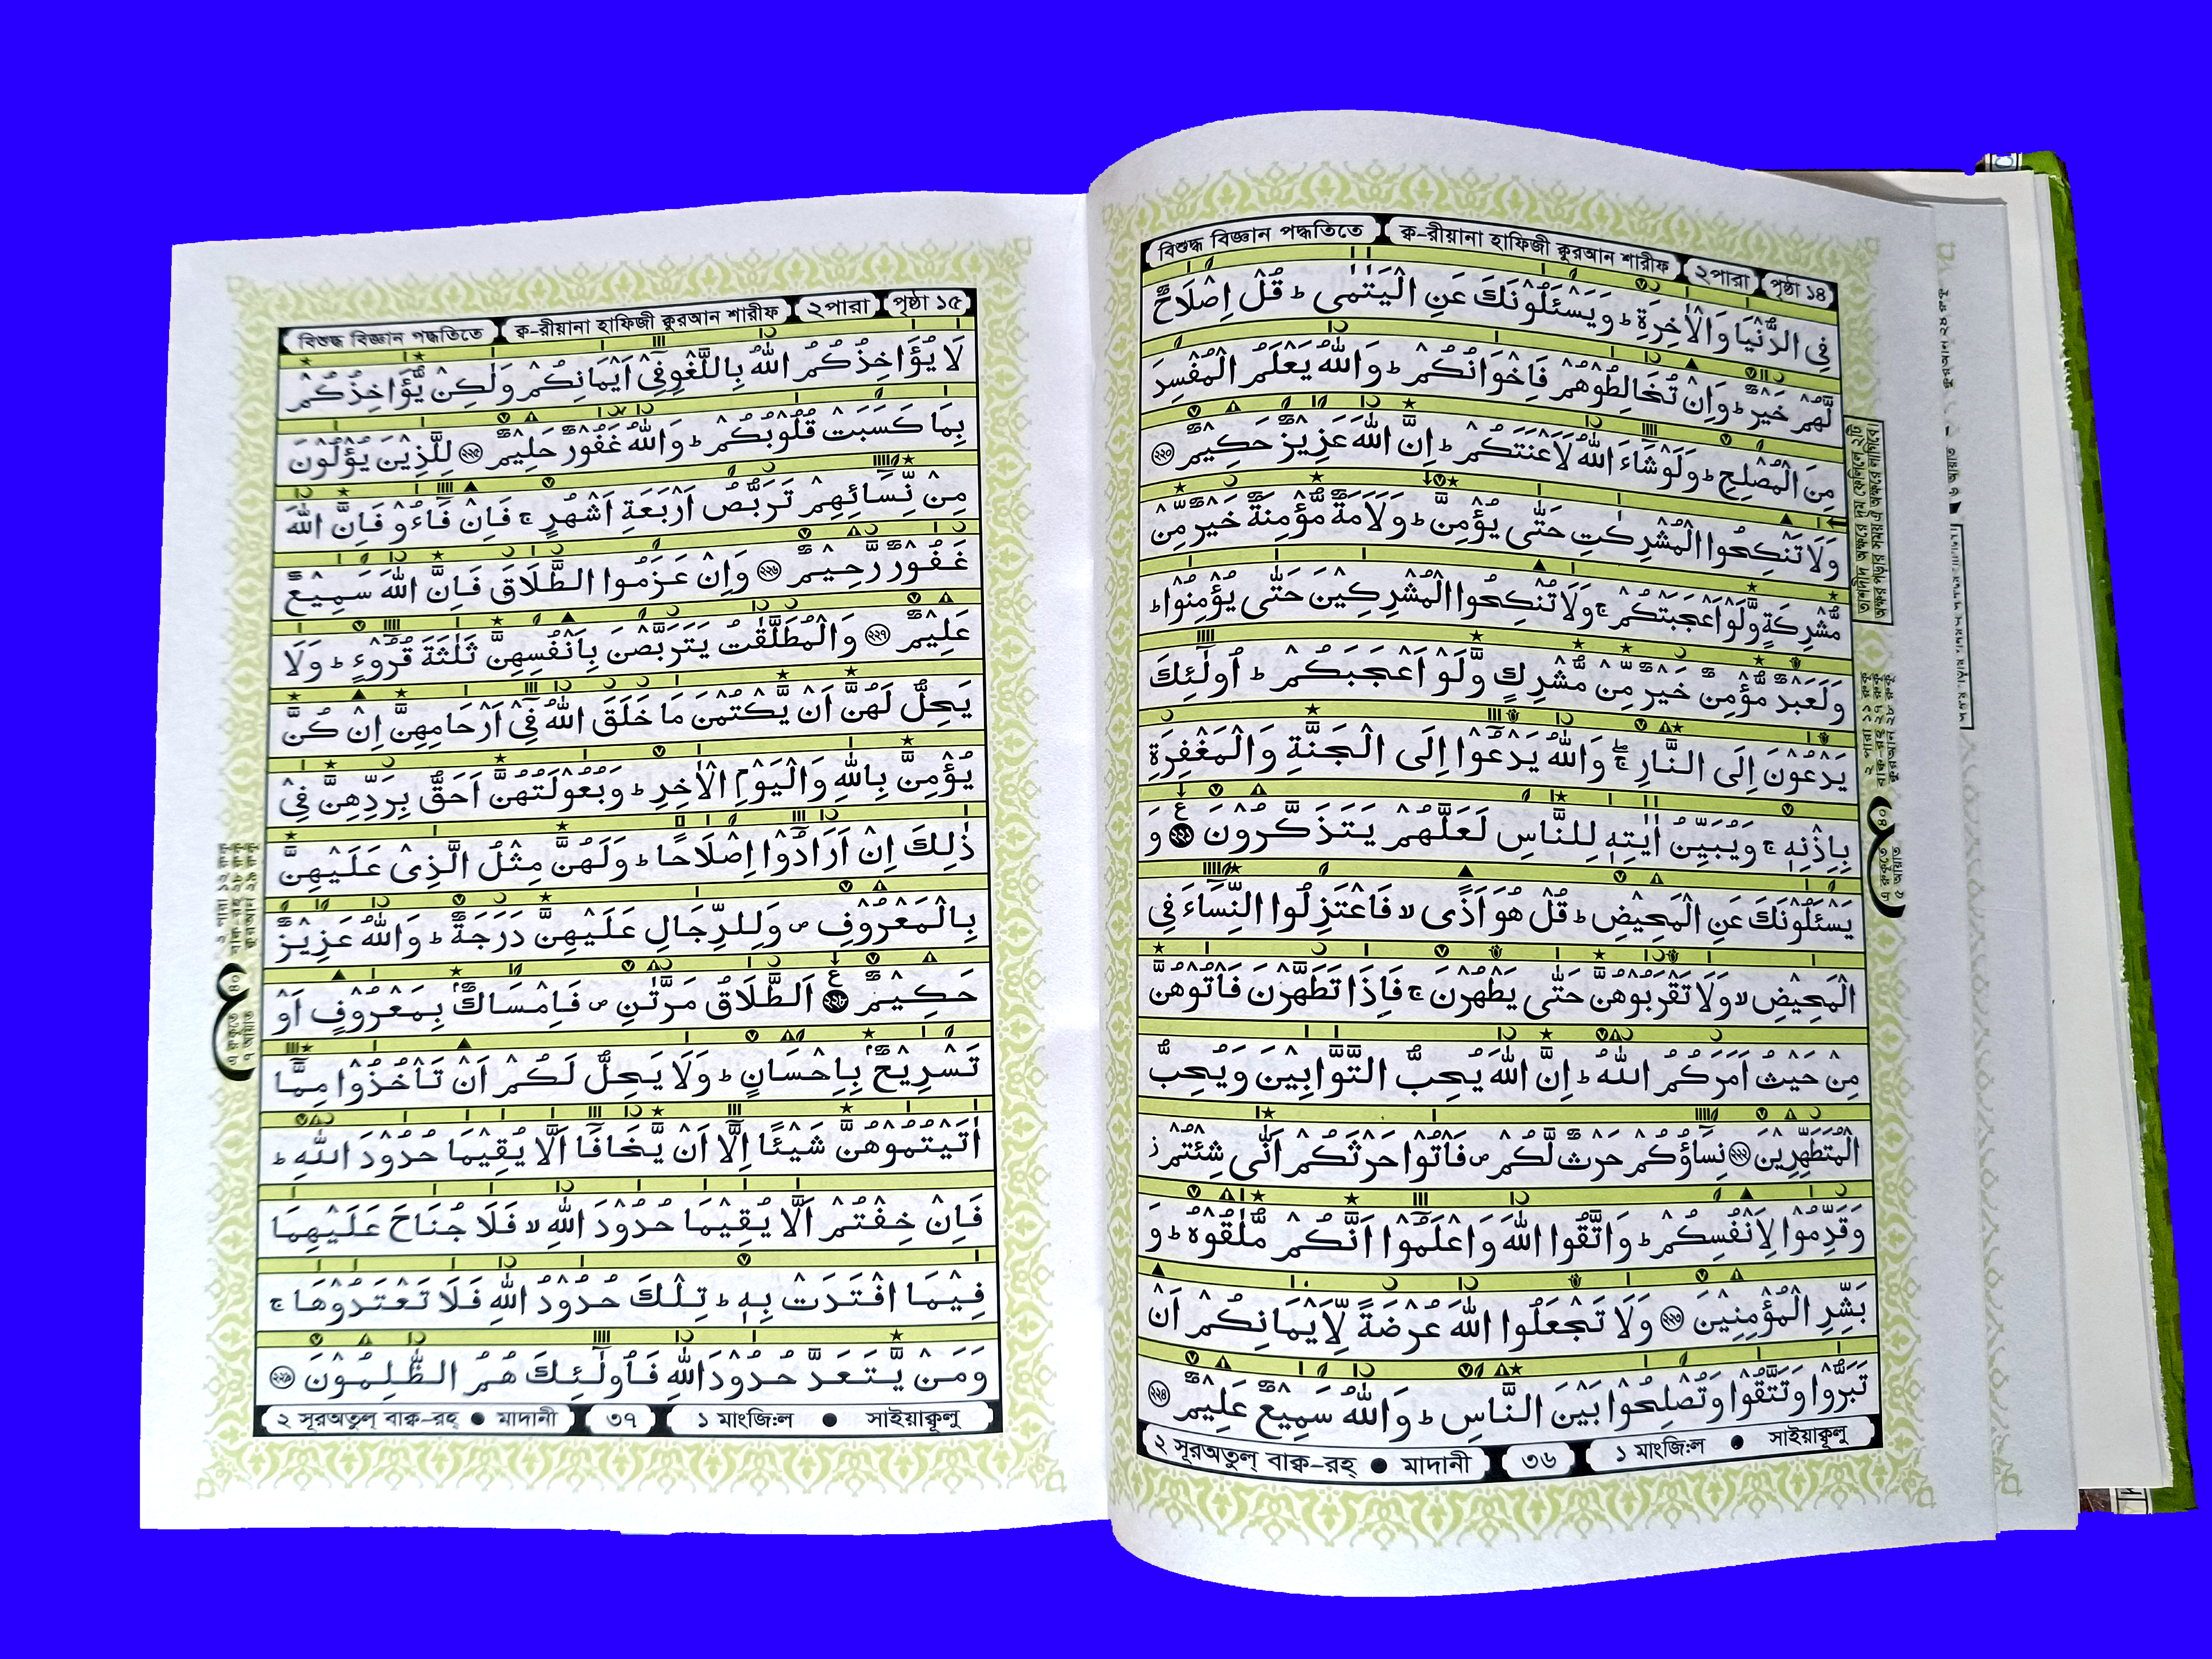 বিশুদ্ধ বিজ্ঞান পদ্ধতিতে ক্ব-রীয়ানা হাফিজী কুরআন শারীফ ২পারা পৃষ্ঠা ১৪
فِي الدُّنْيَا وَالْاٰخِرَةِ ؕ وَيَسْئَلُوْنَكَ عَنِ الْيَتٰمٰى ؕ قُلْ اِصْلَاحٌ
لَّهُمْ خَيْرٌ ؕ وَاِنْ تُخَالِطُوْهُمْ فَاِخْوَانُكُمْ ؕ وَاللّٰهُ يَعْلَمُ الْمُفْسِدَ
مِنَ الْمُصْلِحِ ؕ وَلَوْ شَآءَ اللّٰهُ لَاَعْنَتَكُمْ ؕ اِنَّ اللّٰهَ عَزِيْزٌ حَكِيْمٌ ২২০
وَلَا تَنْكِحُوا الْمُشْرِكٰتِ حَتّٰى يُؤْمِنَّ ؕ وَلَاَمَةٌ مُّؤْمِنَةٌ خَيْرٌ مِّنْ
مُّشْرِكَةٍ وَّلَوْ اَعْجَبَتْكُمْ ۚ وَلَا تُنْكِحُوا الْمُشْرِكِيْنَ حَتّٰى يُؤْمِنُوْا ؕ
وَلَعَبْدٌ مُّؤْمِنٌ خَيْرٌ مِّنْ مُّشْرِكٍ وَّلَوْ اَعْجَبَكُمْ ؕ اُولٰٓئِكَ
يَدْعُوْنَ اِلَى النَّارِ ۖۚ وَاللّٰهُ يَدْعُوْٓا اِلَى الْجَنَّةِ وَالْمَغْفِرَةِ
بِاِذْنِهٖ ۚ وَيُبَيِّنُ اٰيٰتِهٖ لِلنَّاسِ لَعَلَّهُمْ يَتَذَكَّرُوْنَ ২২১ وَ
يَسْئَلُوْنَكَ عَنِ الْمَحِيْضِ ؕ قُلْ هُوَ اَذًى ۙ فَاعْتَزِلُوا النِّسَآءَ فِي
الْمَحِيْضِ ۙ وَلَا تَقْرَبُوْهُنَّ حَتّٰى يَطْهُرْنَ ۚ فَاِذَا تَطَهَّرْنَ فَاْتُوْهُنَّ
مِنْ حَيْثُ اَمَرَكُمُ اللّٰهُ ؕ اِنَّ اللّٰهَ يُحِبُّ التَّوَّابِيْنَ وَيُحِبُّ
الْمُتَطَهِّرِيْنَ ২২২ نِسَآؤُكُمْ حَرْثٌ لَّكُمْ ۪ فَاْتُوْا حَرْثَكُمْ اَنّٰى شِئْتُمْ ز
وَقَدِّمُوْا لِاَنْفُسِكُمْ ؕ وَاتَّقُوا اللّٰهَ وَاعْلَمُوْٓا اَنَّكُمْ مُّلٰقُوْهُ ؕ وَ
بَشِّرِ الْمُؤْمِنِيْنَ ২২৩ وَلَا تَجْعَلُوا اللّٰهَ عُرْضَةً لِّاَيْمَانِكُمْ اَنْ
تَبَرُّوْا وَتَتَّقُوْا وَتُصْلِحُوْا بَيْنَ النَّاسِ ؕ وَاللّٰهُ سَمِيْعٌ عَلِيْمٌ ২২৪
২ সূরঅতুল্ বাক্ব-রহ্ ● মাদানী ৩৬ ১ মাংজি:ল ● সাইয়াক্বূলু
তাশদীদ অক্ষরে দুম ফেলিলে ২টি
অক্ষর পড়ার সময় ঐ অক্ষরে লাগিবে।
এ রুকুতে
৫ আয়াত
বিশুদ্ধ বিজ্ঞান পদ্ধতিতে ক্ব-রীয়ানা হাফিজী কুরআন শারীফ ২পারা পৃষ্ঠা ১৫
لَا يُؤَاخِذُكُمُ اللّٰهُ بِاللَّغْوِ فِيْٓ اَيْمَانِكُمْ وَلٰكِنْ يُّؤَاخِذُكُمْ
بِمَا كَسَبَتْ قُلُوْبُكُمْ ؕ وَاللّٰهُ غَفُوْرٌ حَلِيْمٌ ২২৫ لِلَّذِيْنَ يُؤْلُوْنَ
مِنْ نِّسَآئِهِمْ تَرَبُّصُ اَرْبَعَةِ اَشْهُرٍ ۚ فَاِنْ فَآءُوْ فَاِنَّ اللّٰهَ
غَفُوْرٌ رَّحِيْمٌ ২২৬ وَاِنْ عَزَمُوا الطَّلَاقَ فَاِنَّ اللّٰهَ سَمِيْعٌ
عَلِيْمٌ ২২৭ وَالْمُطَلَّقٰتُ يَتَرَبَّصْنَ بِاَنْفُسِهِنَّ ثَلٰثَةَ قُرُوْٓءٍ ؕ وَلَا
يَحِلُّ لَهُنَّ اَنْ يَّكْتُمْنَ مَا خَلَقَ اللّٰهُ فِيْٓ اَرْحَامِهِنَّ اِنْ كُنَّ
يُؤْمِنَّ بِاللّٰهِ وَالْيَوْمِ الْاٰخِرِ ؕ وَبُعُوْلَتُهُنَّ اَحَقُّ بِرَدِّهِنَّ فِيْ
ذٰلِكَ اِنْ اَرَادُوْٓا اِصْلَاحًا ؕ وَلَهُنَّ مِثْلُ الَّذِيْ عَلَيْهِنَّ
بِالْمَعْرُوْفِ ۪ وَلِلرِّجَالِ عَلَيْهِنَّ دَرَجَةٌ ؕ وَاللّٰهُ عَزِيْزٌ
حَكِيْمٌ ২২৮ اَلطَّلَاقُ مَرَّتٰنِ ۪ فَاِمْسَاكٌۢ بِمَعْرُوْفٍ اَوْ
تَسْرِيْحٌۢ بِاِحْسَانٍ ؕ وَلَا يَحِلُّ لَكُمْ اَنْ تَاْخُذُوْا مِمَّآ
اٰتَيْتُمُوْهُنَّ شَيْئًا اِلَّآ اَنْ يَّخَافَآ اَلَّا يُقِيْمَا حُدُوْدَ اللّٰهِ ؕ
فَاِنْ خِفْتُمْ اَلَّا يُقِيْمَا حُدُوْدَ اللّٰهِ ۙ فَلَا جُنَاحَ عَلَيْهِمَا
فِيْمَا افْتَدَتْ بِهٖ ؕ تِلْكَ حُدُوْدُ اللّٰهِ فَلَا تَعْتَدُوْهَا ۚ
وَمَنْ يَّتَعَدَّ حُدُوْدَ اللّٰهِ فَاُولٰٓئِكَ هُمُ الظّٰلِمُوْنَ ২২৯
২ সূরঅতুল্ বাক্ব-রহ্ ● মাদানী ৩৭ ১ মাংজি:ল ● সাইয়াক্বূলু
এ রুকুতে
৭ আয়াত